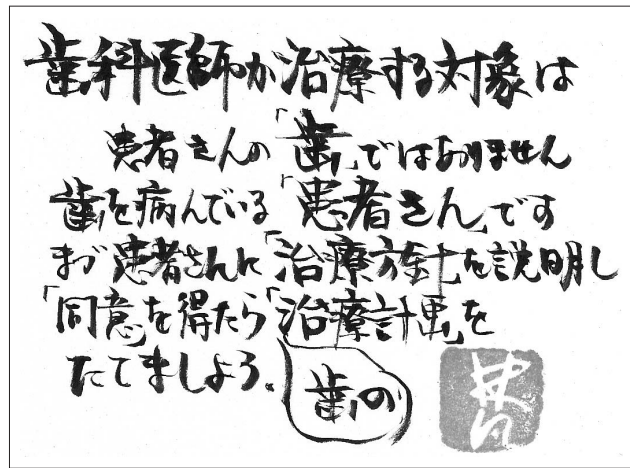 歯科医師が治療する対象は
患者さんの「歯」ではありません
歯を病んでいる「患者さん」です
まず患者さんに「治療方針」を説明し
「同意」を得たら「治療計画」を
たてましょう。
歯の